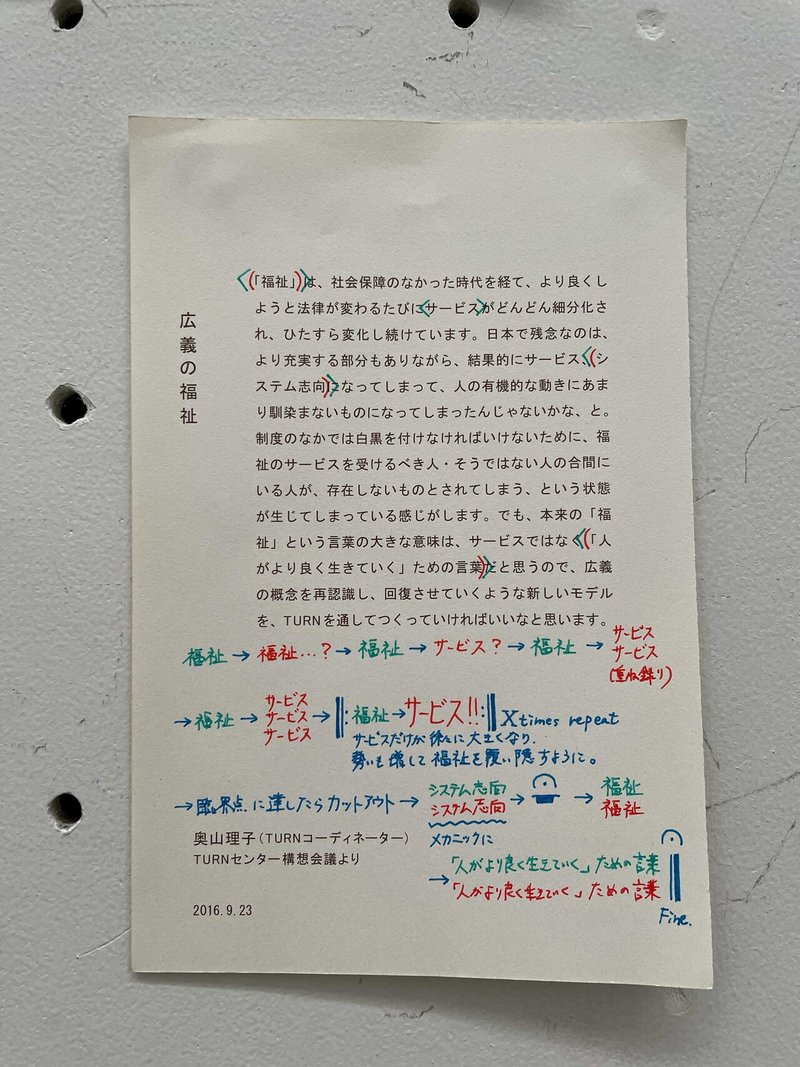 広義の福祉
「福祉」は、社会保障のなかった時代を経て、より良くし
ようと法律が変わるたびにサービスがどんどん細分化さ
れ、ひたすら変化し続けています。日本で残念なのは、
より充実する部分もありながら、結果的にサービス、シ
ステム志向になってしまって、人の有機的な動きにあま
り馴染まないものになってしまったんじゃないかな、と。
制度のなかでは白黒を付けなければいけないために、福
祉のサービスを受けるべき人・そうではない人の合間に
いる人が、存在しないものとされてしまう、という状態
が生じてしまっている感じがします。でも、本来の「福
祉」という言葉の大きな意味は、サービスではなく「人
がより良く生きていく」ための言葉だと思うので、広義
の概念を再認識し、回復させていくような新しいモデル
を、TURNを通してつくっていければいいなと思います。
福祉→福祉…?→福祉→サービス?→福祉→サービス
サービス
(重ね録り)
→福祉→サービス
サービス
サービス
→‖:福祉→サービス!!:‖ X times repeat
サービスだけが徐々に大きくなり、
勢いも増して福祉を覆い隠すように。
→臨界点に達したらカットアウト→システム志向
システム志向
メカニックに
→𝄐→福祉
福祉
→「人がより良く生きていく」ための言葉
「人がより良く生きていく」ための言葉
𝄐
Fine.
奥山理子(TURNコーディネーター)
TURNセンター構想会議より
2016.9.23